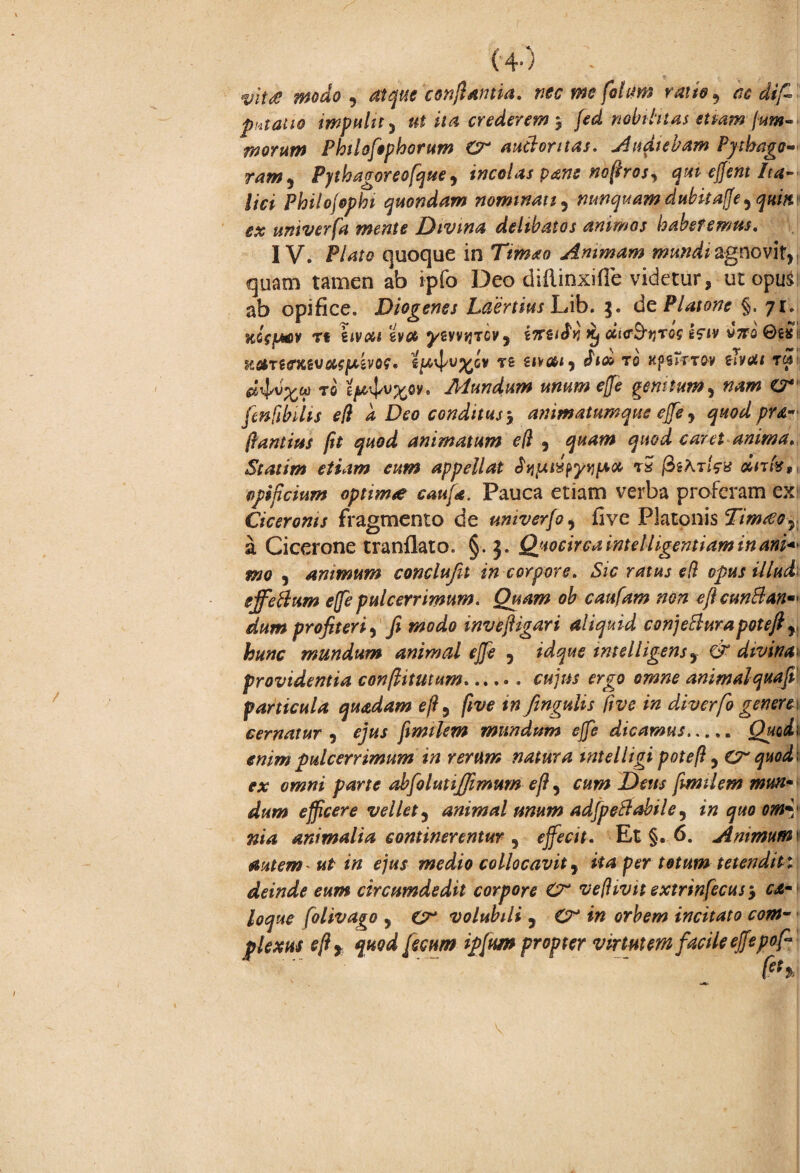 (4)
vitæ modo, atque conſtantia. nec me ſolum ratio, ac diſ-
putatio impulit, ut ita crederem; ſed nobilitas etiam ſum-
morum Philoſophorum & auctoritas. Audiebam Pythago-
ram, Pythagoreoſque, incolas pæne noſtros, qui eſſent Ita-
lici Philoſophi quondam nominati, nunquam dubitaſſe, quin
ex univerſa mente Divina delibatos animos haberemus.
IV. Plato quoque in Timæo Animam mundi agnovit,
quam tamen ab ipſo Deo diſtinxiſſe videtur, ut opus
ab opifice. Diogenes Laërtius Lib. 3. de Platone §. 71.
κόςμον τε εἶναι ἕνα γεννητὸν, ἐπειδὴ ϗ αἰσθητὸς ἐςιν ὑπὸ Θεȣ
κατεσκευαςμένος. ἔμψυχόν τε εἶναι, διὰ τὸ κρεῖττον εἶναι τῷ
ἀψύχῳ τὸ ἔμψυχον. Mundum unum eſſe genitum, nam &
ſenſibilis eſt à Deo conditus; animatumque eſſe, quod præ-
ſtantius ſit quod animatum eſt, quam quod caret anima.
Statim etiam eum appellat δημιȣργημα τȣ βελτίςȣ αἰτίȣ,
opificium optimæ cauſæ. Pauca etiam verba proferam ex
Ciceronis fragmento de univerſo, ſive Platonis Timæo,
à Cicerone tranſlato. §. 3. Quocirca intelligentiam in ani-
mo, animum concluſit in corpore. Sic ratus eſt opus illud
effectum eſſe pulcerrimum. Quam ob cauſam non eſt cunctan-
dum profiteri, ſi modo inveſtigari aliquid conjectura poteſt,
hunc mundum animal eſſe, idque intelligens, & divina
providentia conſtitutum...... cujus ergo omne animal quaſi
particula quædam eſt, ſive in ſingulis ſive in diverſo genere
cernatur, ejus ſimilem mundum eſſe dicamus..... Quod
enim pulcerrimum in rerum natura intelligi poteſt, & quod
ex omni parte abſolutiſſimum eſt, cum Deus ſimilem mun-
dum efficere vellet, animal unum adſpectabile, in quo om-
nia animalia continerentur, effecit. Et §. 6. Animum
autem ut in ejus medio collocavit, ita per totum tetendit:
deinde eum circumdedit corpore & veſtivit extrinſecus; cæ-
loque ſolivago, & volubili, & in orbem incitato com-
plexus eſt, quod ſecum ipſum propter virtutem facile eſſe poſ-
ſet,